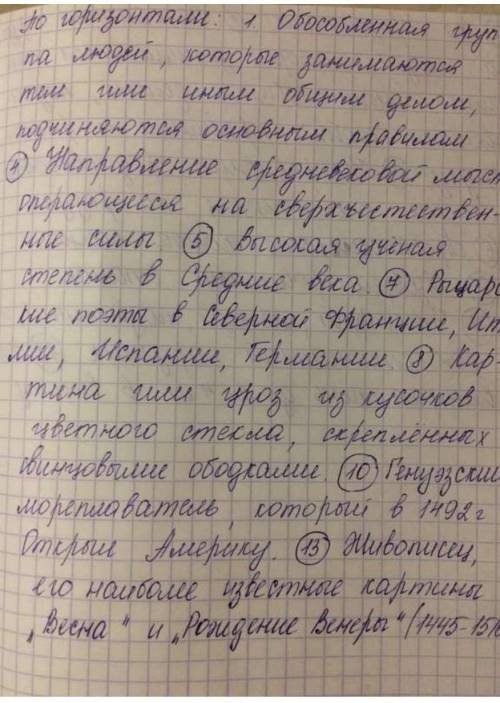 По горизонтали: 1. Обособленная груп
па людей, которые занимаются
тем или иным общим делом,
подчиняются основным правилам
4 Направление средневековой мысл
опирающееся на сверхчестествен-
ные силы 5 Высокая учёная
степень в Средние века. 7 Рыцарс
кие поэты в Северной Франции, Ит
лии, Испании, Германии. 8 Кар-
тина или узор из кусочков
цветного стекла, скреплённых
свинцовыми ободками. 10 Генуэзский
мореплаватель, который в 1492г
Открыл Америку. 13 Живописец,
его наиболее известные картины
„Весна" и „Рождение Венеры" (1445-1510